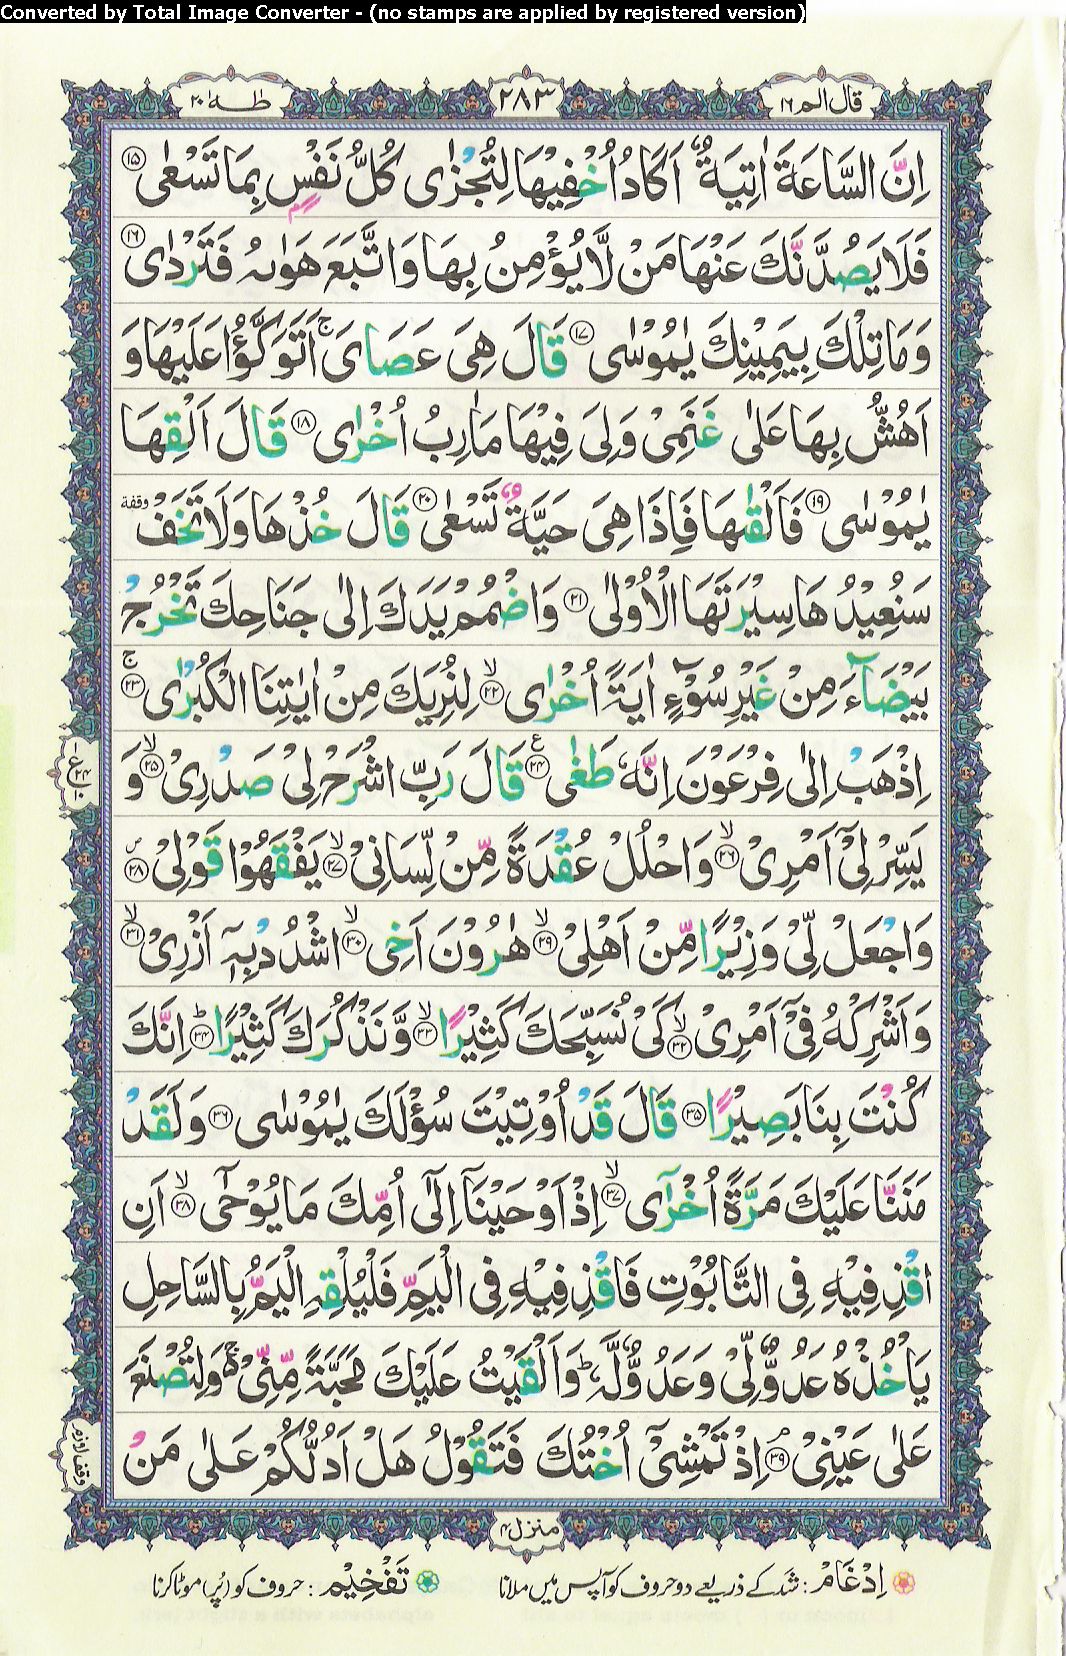 Converted by Total Image Converter - (no stamps are applied by registered version)
قال الم ١٦
٢٨٣
طٰهٰ ٢٠
اِنَّ السَّاعَةَ اٰتِيَةٌ اَكَادُ اُخْفِيْهَا لِتُجْزٰى كُلُّ نَفْسٍۭ بِمَا تَسْعٰى ۝١٥
فَلَا يَصُدَّنَّكَ عَنْهَا مَنْ لَّا يُؤْمِنُ بِهَا وَاتَّبَعَ هَوٰىهُ فَتَرْدٰى ۝١٦
وَمَا تِلْكَ بِيَمِيْنِكَ يٰمُوْسٰى ۝١٧ قَالَ هِىَ عَصَاىَ ۚ اَتَوَكَّؤُا عَلَيْهَا وَ
اَهُشُّ بِهَا عَلٰى غَنَمِىْ وَلِىَ فِيْهَا مَاٰرِبُ اُخْرٰى ۝١٨ قَالَ اَلْقِهَا
يٰمُوْسٰى ۝١٩ فَاَلْقٰىهَا فَاِذَا هِىَ حَيَّةٌ تَسْعٰى ۝٢٠ قَالَ خُذْهَا وَلَا تَخَفْ وقفة
سَنُعِيْدُهَا سِيْرَتَهَا الْاُوْلٰى ۝٢١ وَاضْمُمْ يَدَكَ اِلٰى جَنَاحِكَ تَخْرُجْ
بَيْضَآءَ مِنْ غَيْرِ سُوْٓءٍ اٰيَةً اُخْرٰى ۙ۝٢٢ لِنُرِيَكَ مِنْ اٰيٰتِنَا الْكُبْرٰى ۚ۝٢٣
اِذْهَبْ اِلٰى فِرْعَوْنَ اِنَّهٗ طَغٰى ۝٢٤ع قَالَ رَبِّ اشْرَحْ لِىْ صَدْرِىْ ۙ۝٢٥ وَ
يَسِّرْ لِىْٓ اَمْرِىْ ۙ۝٢٦ وَاحْلُلْ عُقْدَةً مِّنْ لِّسَانِىْ ۙ۝٢٧ يَفْقَهُوْا قَوْلِىْ ۝٢٨ص
وَاجْعَلْ لِّىْ وَزِيْرًا مِّنْ اَهْلِىْ ۙ۝٢٩ هٰرُوْنَ اَخِى ۙ۝٣٠ اشْدُدْ بِهٖٓ اَزْرِىْ ۙ۝٣١
وَاَشْرِكْهُ فِىْٓ اَمْرِىْ ۙ۝٣٢ كَىْ نُسَبِّحَكَ كَثِيْرًا ۙ۝٣٣ وَّنَذْكُرَكَ كَثِيْرًا ؕ۝٣٤ اِنَّكَ
كُنْتَ بِنَا بَصِيْرًا ۝٣٥ قَالَ قَدْ اُوْتِيْتَ سُؤْلَكَ يٰمُوْسٰى ۝٣٦ وَلَقَدْ
مَنَنَّا عَلَيْكَ مَرَّةً اُخْرٰٓى ۙ۝٣٧ اِذْ اَوْحَيْنَآ اِلٰٓى اُمِّكَ مَا يُوْحٰٓى ۙ۝٣٨ اَنِ
اقْذِفِيْهِ فِى التَّابُوْتِ فَاقْذِفِيْهِ فِى الْيَمِّ فَلْيُلْقِهِ الْيَمُّ بِالسَّاحِلِ
يَاْخُذْهُ عَدُوٌّ لِّىْ وَعَدُوٌّ لَّهٗ ؕ وَاَلْقَيْتُ عَلَيْكَ مَحَبَّةً مِّنِّىْ ۚ وَلِتُصْنَعَ
عَلٰى عَيْنِىْ ۝٣٩ۘ اِذْ تَمْشِىْٓ اُخْتُكَ فَتَقُوْلُ هَلْ اَدُلُّكُمْ عَلٰى مَنْ
منزل ٤
اِدْغَام : شد کے ذریعے دو حروف کو آپس میں ملانا
تَفْخِیْم : حروف کو (پُر) موٹا کرنا